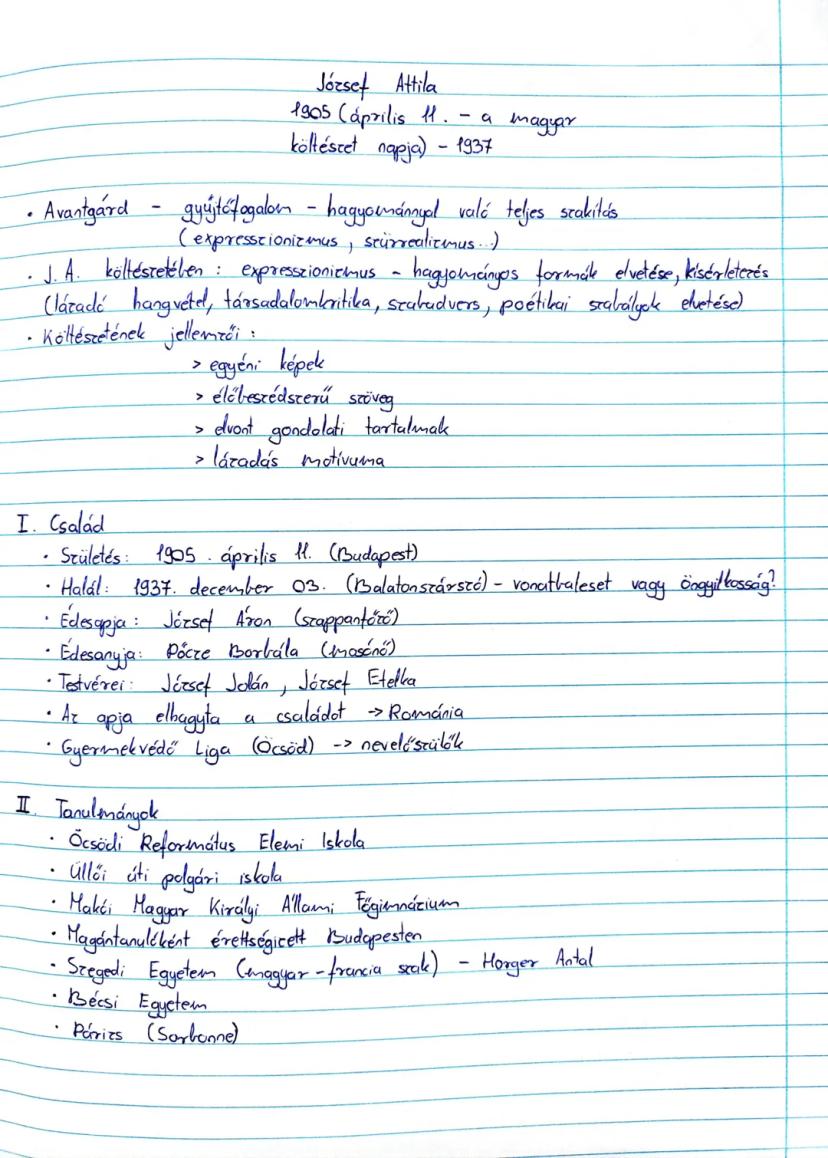 József Attila
1905 (április 11. - a magyar
költészet napja) - 1937
• Avantgárd - gyűjtőfogalom - hagyománnyal való teljes szakítás
(expresszionizmus, szürrealizmus...)
• J. A. költészetében: expresszionizmus - hagyományos formák elvetése, kísérletezés
(lázadó hangvétel, társadalomkritika, szabadvers, poétikai szabályok elvetése)
• Költészetének jellemzői:
> egyéni képek
> élőbeszédszerű szöveg
> elvont gondolati tartalmak
> lázadás motívuma
I. Család
• Születés: 1905. április 11. (Budapest)
• Halál: 1937. december 03. (Balatonszárszó) - vonatbaleset vagy öngyilkosság?
• Édesapja: József Áron (szappanfőző)
• Édesanyja: Pőcze Borbála (mosónő)
• Testvérei: József Jolán, József Etelka
• Az apja elhagyta a családot -> Románia
• Gyermekvédő Liga (Öcsöd) -> nevelőszülők
II. Tanulmányok
• Öcsödi Református Elemi Iskola
• Üllői úti polgári iskola
• Makói Magyar Királyi Állami Főgimnázium
• Magántanulóként érettségizett Budapesten
• Szegedi Egyetem (magyar-francia szak) - Horger Antal
• Bécsi Egyetem
• Párizs (Sorbonne)